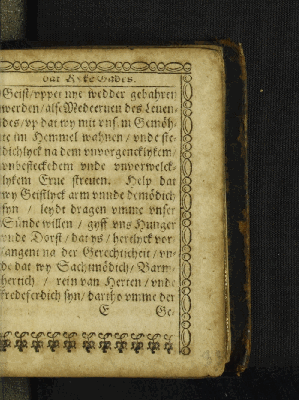 dat Ryke Gades.
Geist/ vppet nye wedder gebahren
werden/ alse Medeerven des Leven-
des/ vp dat wy mit vns. in Gemöh-
te im Hemmel wahnen/ vnde ste-
dichlyck na dem vnvorgencklykem/
vnbesteckedem vnde vnvorwelck-
lykem Erve streven. Help dat
wy Geistlyck arm vnnde demödich
syn / leydt dragen vmme vnser
Sünde willen / gyff vns Hunger
vnde Dorst / dat ys / hertlyck vor-
langent na der Gerechticheit / vn-
de dat wy Sachtmödich/ Barm-
hertich / rein van Herten / vnde
fredeferdich syn/ dartho vmme der
E Ge-